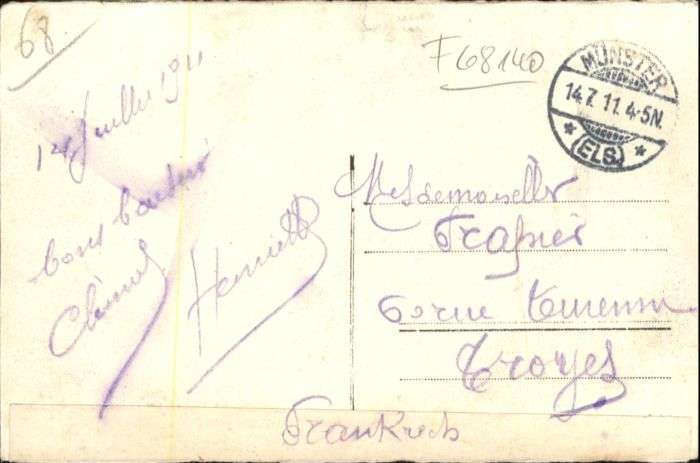 68.
F68140
MÜNSTER
14.7.11.4-5N.
(ELS)
14 Juillet 1911
bons baisers
Henriette
Mesdemoiselles
rue Turenne
Troyes
Frankreich